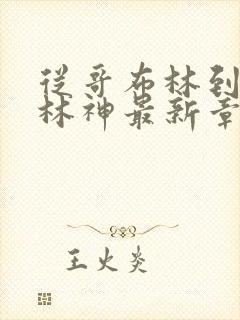 从哥布林到
林神最新章
王火炎